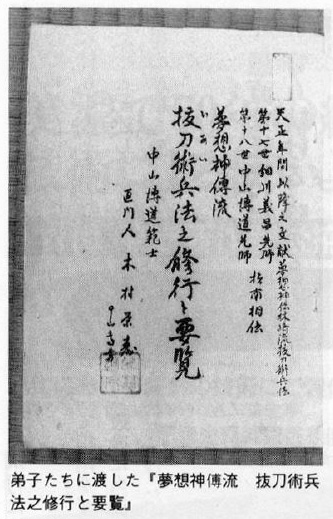 天正年間以降之文献夢想神傳林崎流抜刀術兵法
第十七世細川義昌先師
第十八世中山博道先師 指南相伝
夢想神傳流
いあい
抜刀術兵法之修行と要覧
中山博道範士
直門人 木村栄寿
弟子たちに渡した『夢想神傅流 抜刀術兵
法之修行と要覧』